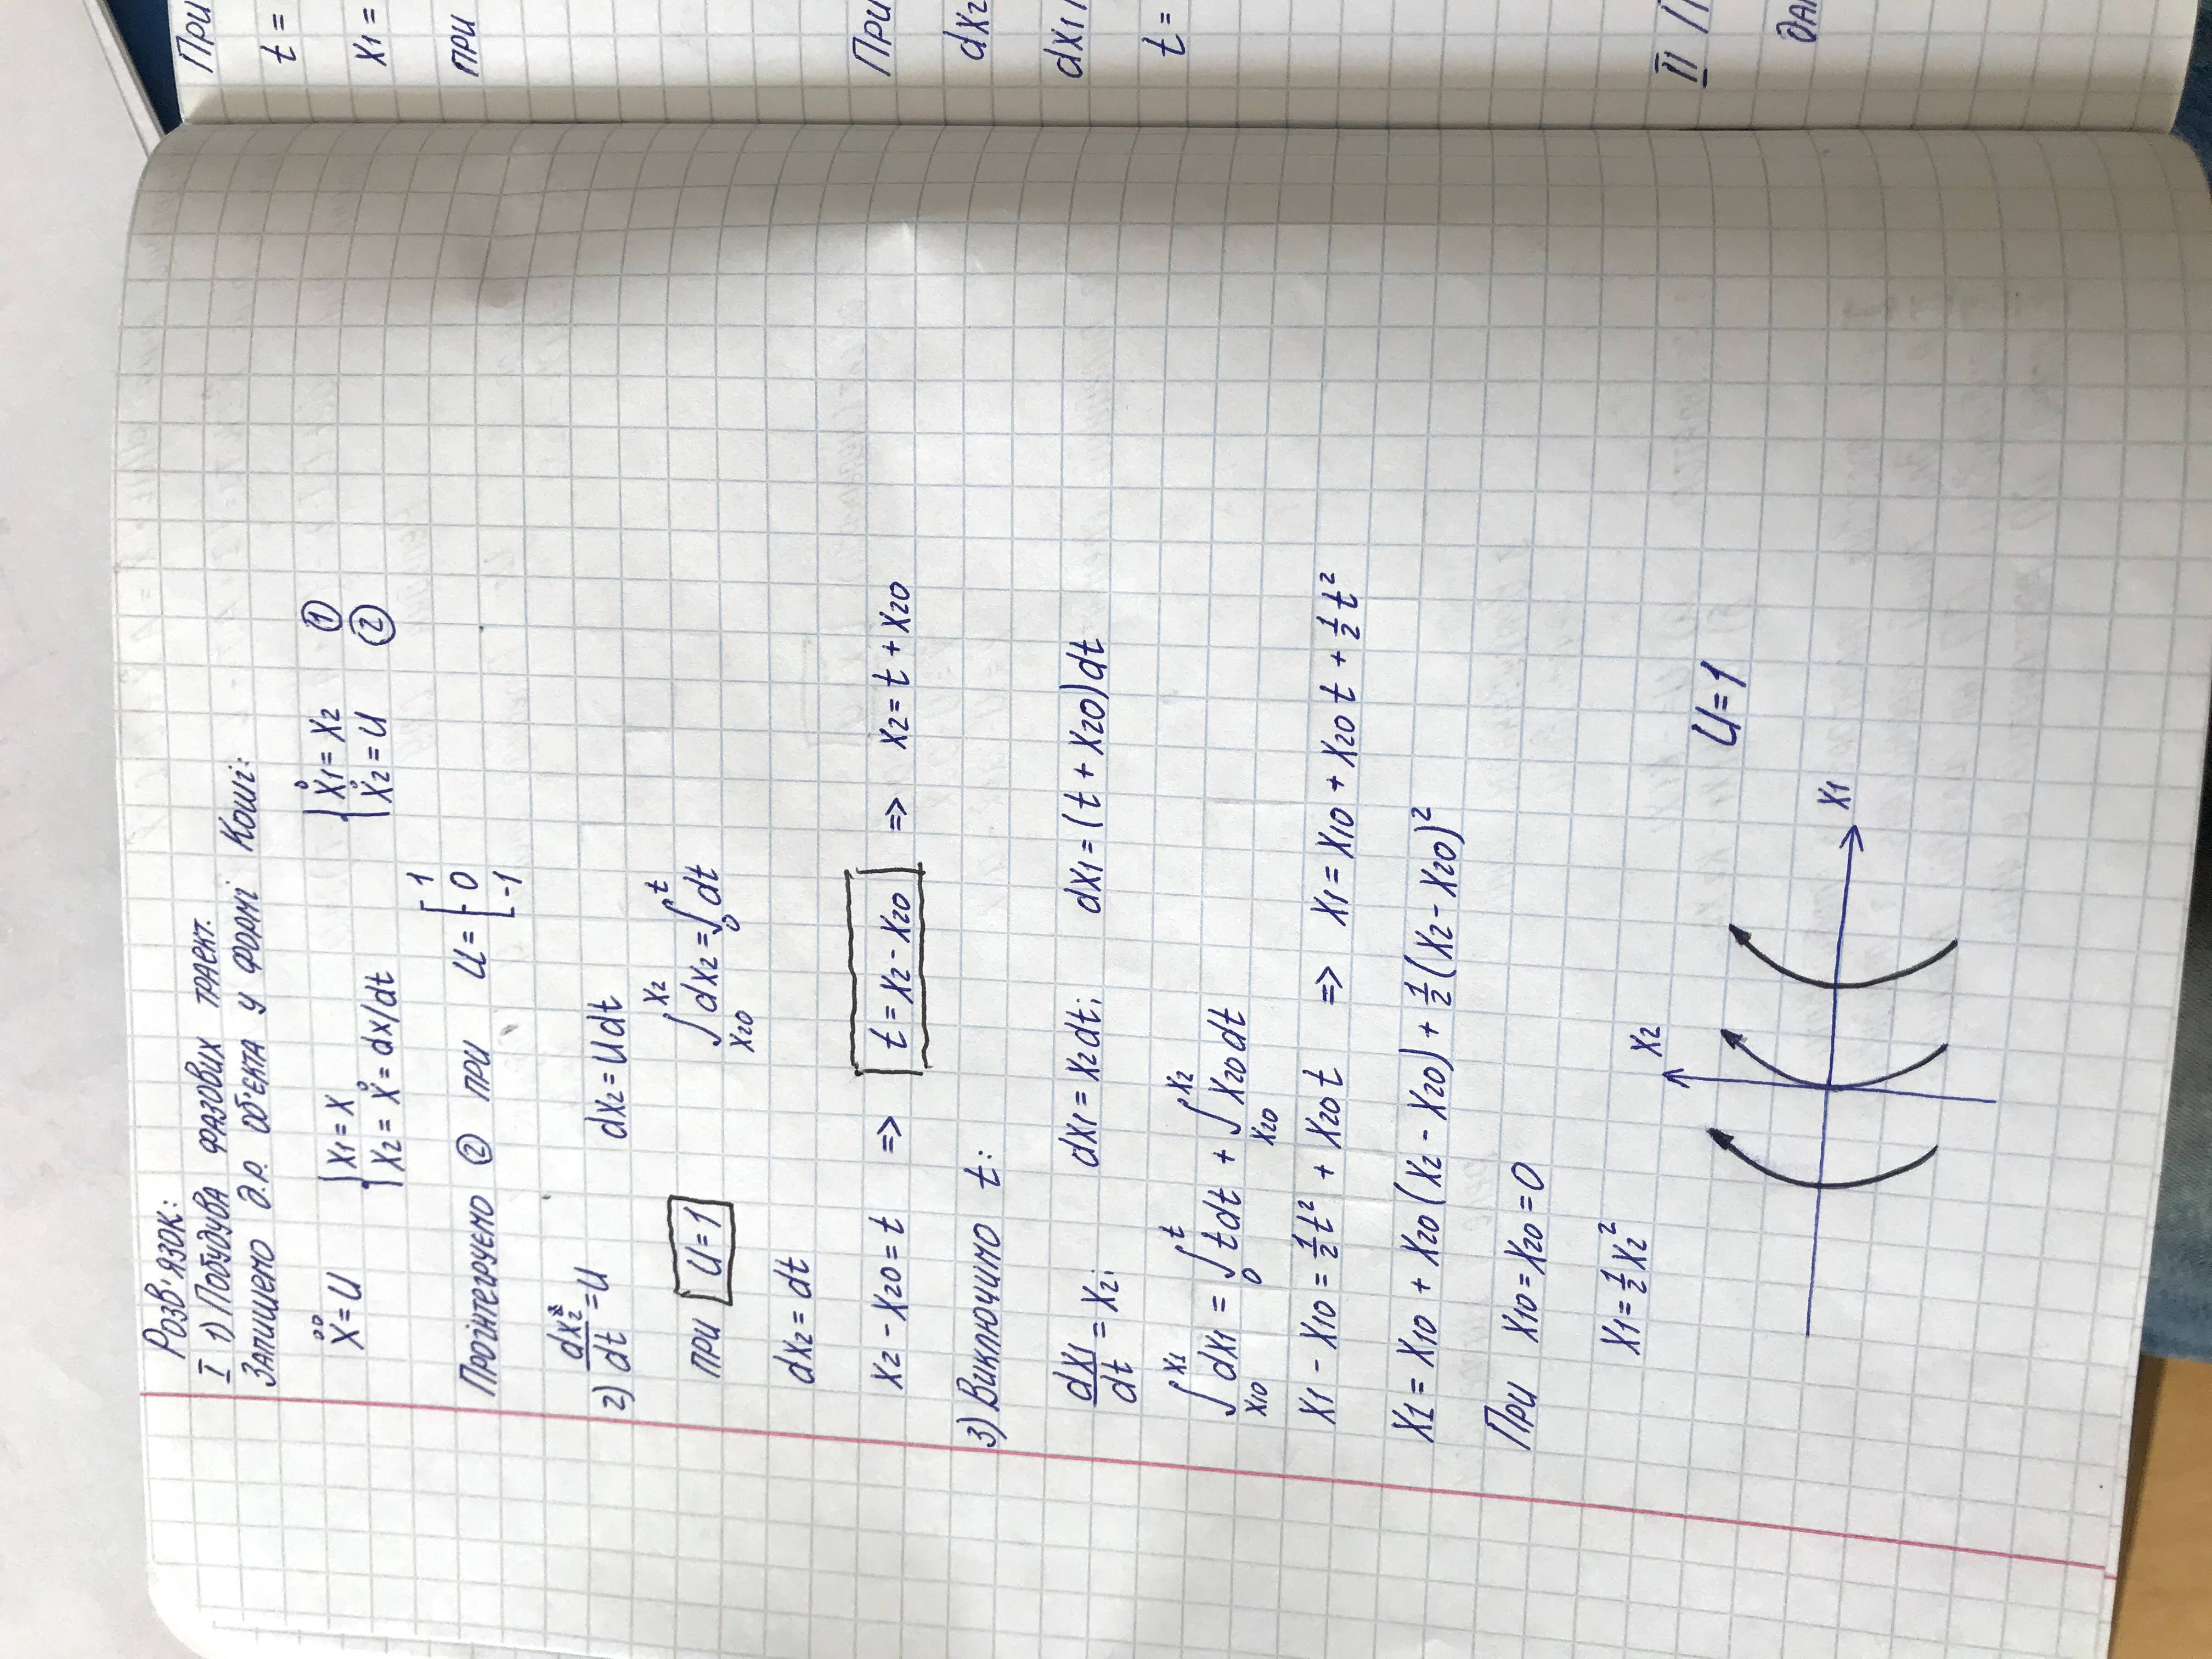 Розв'язок:
I 1) Побудува фазових траєкт.
Запишемо д.р. об'єкта у формі Коші:
ẍ = U { x1 = x { ẋ1 = x2 ①
x2 = ẋ = dx/dt ẋ2 = U ②
Проінтегруємо ② при U = [ 1
0
-1
2) dx2/dt = U dx2 = U dt
при U = 1 ∫_{x20}^{x2} dx2 = ∫_0^t dt
dx2 = dt
x2 - x20 = t => t = x2 - x20 => x2 = t + x20
3) Виключимо t:
dx1/dt = x2; dx1 = x2 dt; dx1 = (t + x20) dt
∫_{x10}^{x1} dx1 = ∫_0^t t dt + ∫_{x20}^{x2} x20 dt
x1 - x10 = ½ t² + x20 t => x1 = x10 + x20 t + ½ t²
x1 = x10 + x20 (x2 - x20) + ½ (x2 - x20)²
При x10 = x20 = 0
x1 = ½ x2²
x2
U = 1
x1
При
t =
x1 =
при
При
dx2
dx1 /
t =
II